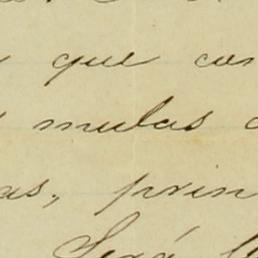 que con
mulas
as, prin
Será